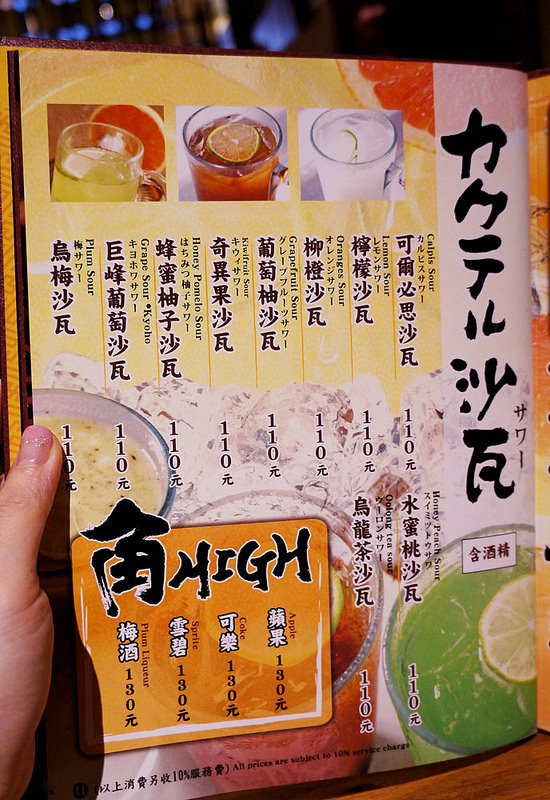 カクテル沙瓦
サワー
含酒精
Calpis Sour
カルピスサワー
可爾必思沙瓦
110元
Lemon Sour
レモンサワー
檸檬沙瓦
110元
Oranges Sour
オレンジサワー
柳橙沙瓦
110元
Grapefruit Sour
グレープフルーツサワー
葡萄柚沙瓦
110元
Kiwifruit Sour
キウィサワー
奇異果沙瓦
110元
Honey Pomelo Sour
はちみつ柚子サワー
蜂蜜柚子沙瓦
110元
Grape Sour •Kyoho
キヨホウサワー
巨峰葡萄沙瓦
110元
Plum Sour
梅サワー
烏梅沙瓦
110元
Honey Peach Sour
スイミットウサワ
水蜜桃沙瓦
110元
Oolong tea sour
ウーロンサワー
烏龍茶沙瓦
110元
角HIGH
Apple
蘋果 130元
Coke
可樂 130元
Sprite
雪碧 130元
Plum Liqueur
梅酒 130元
(以上消費另收10%服務費) All prices are subject to 10% service charge